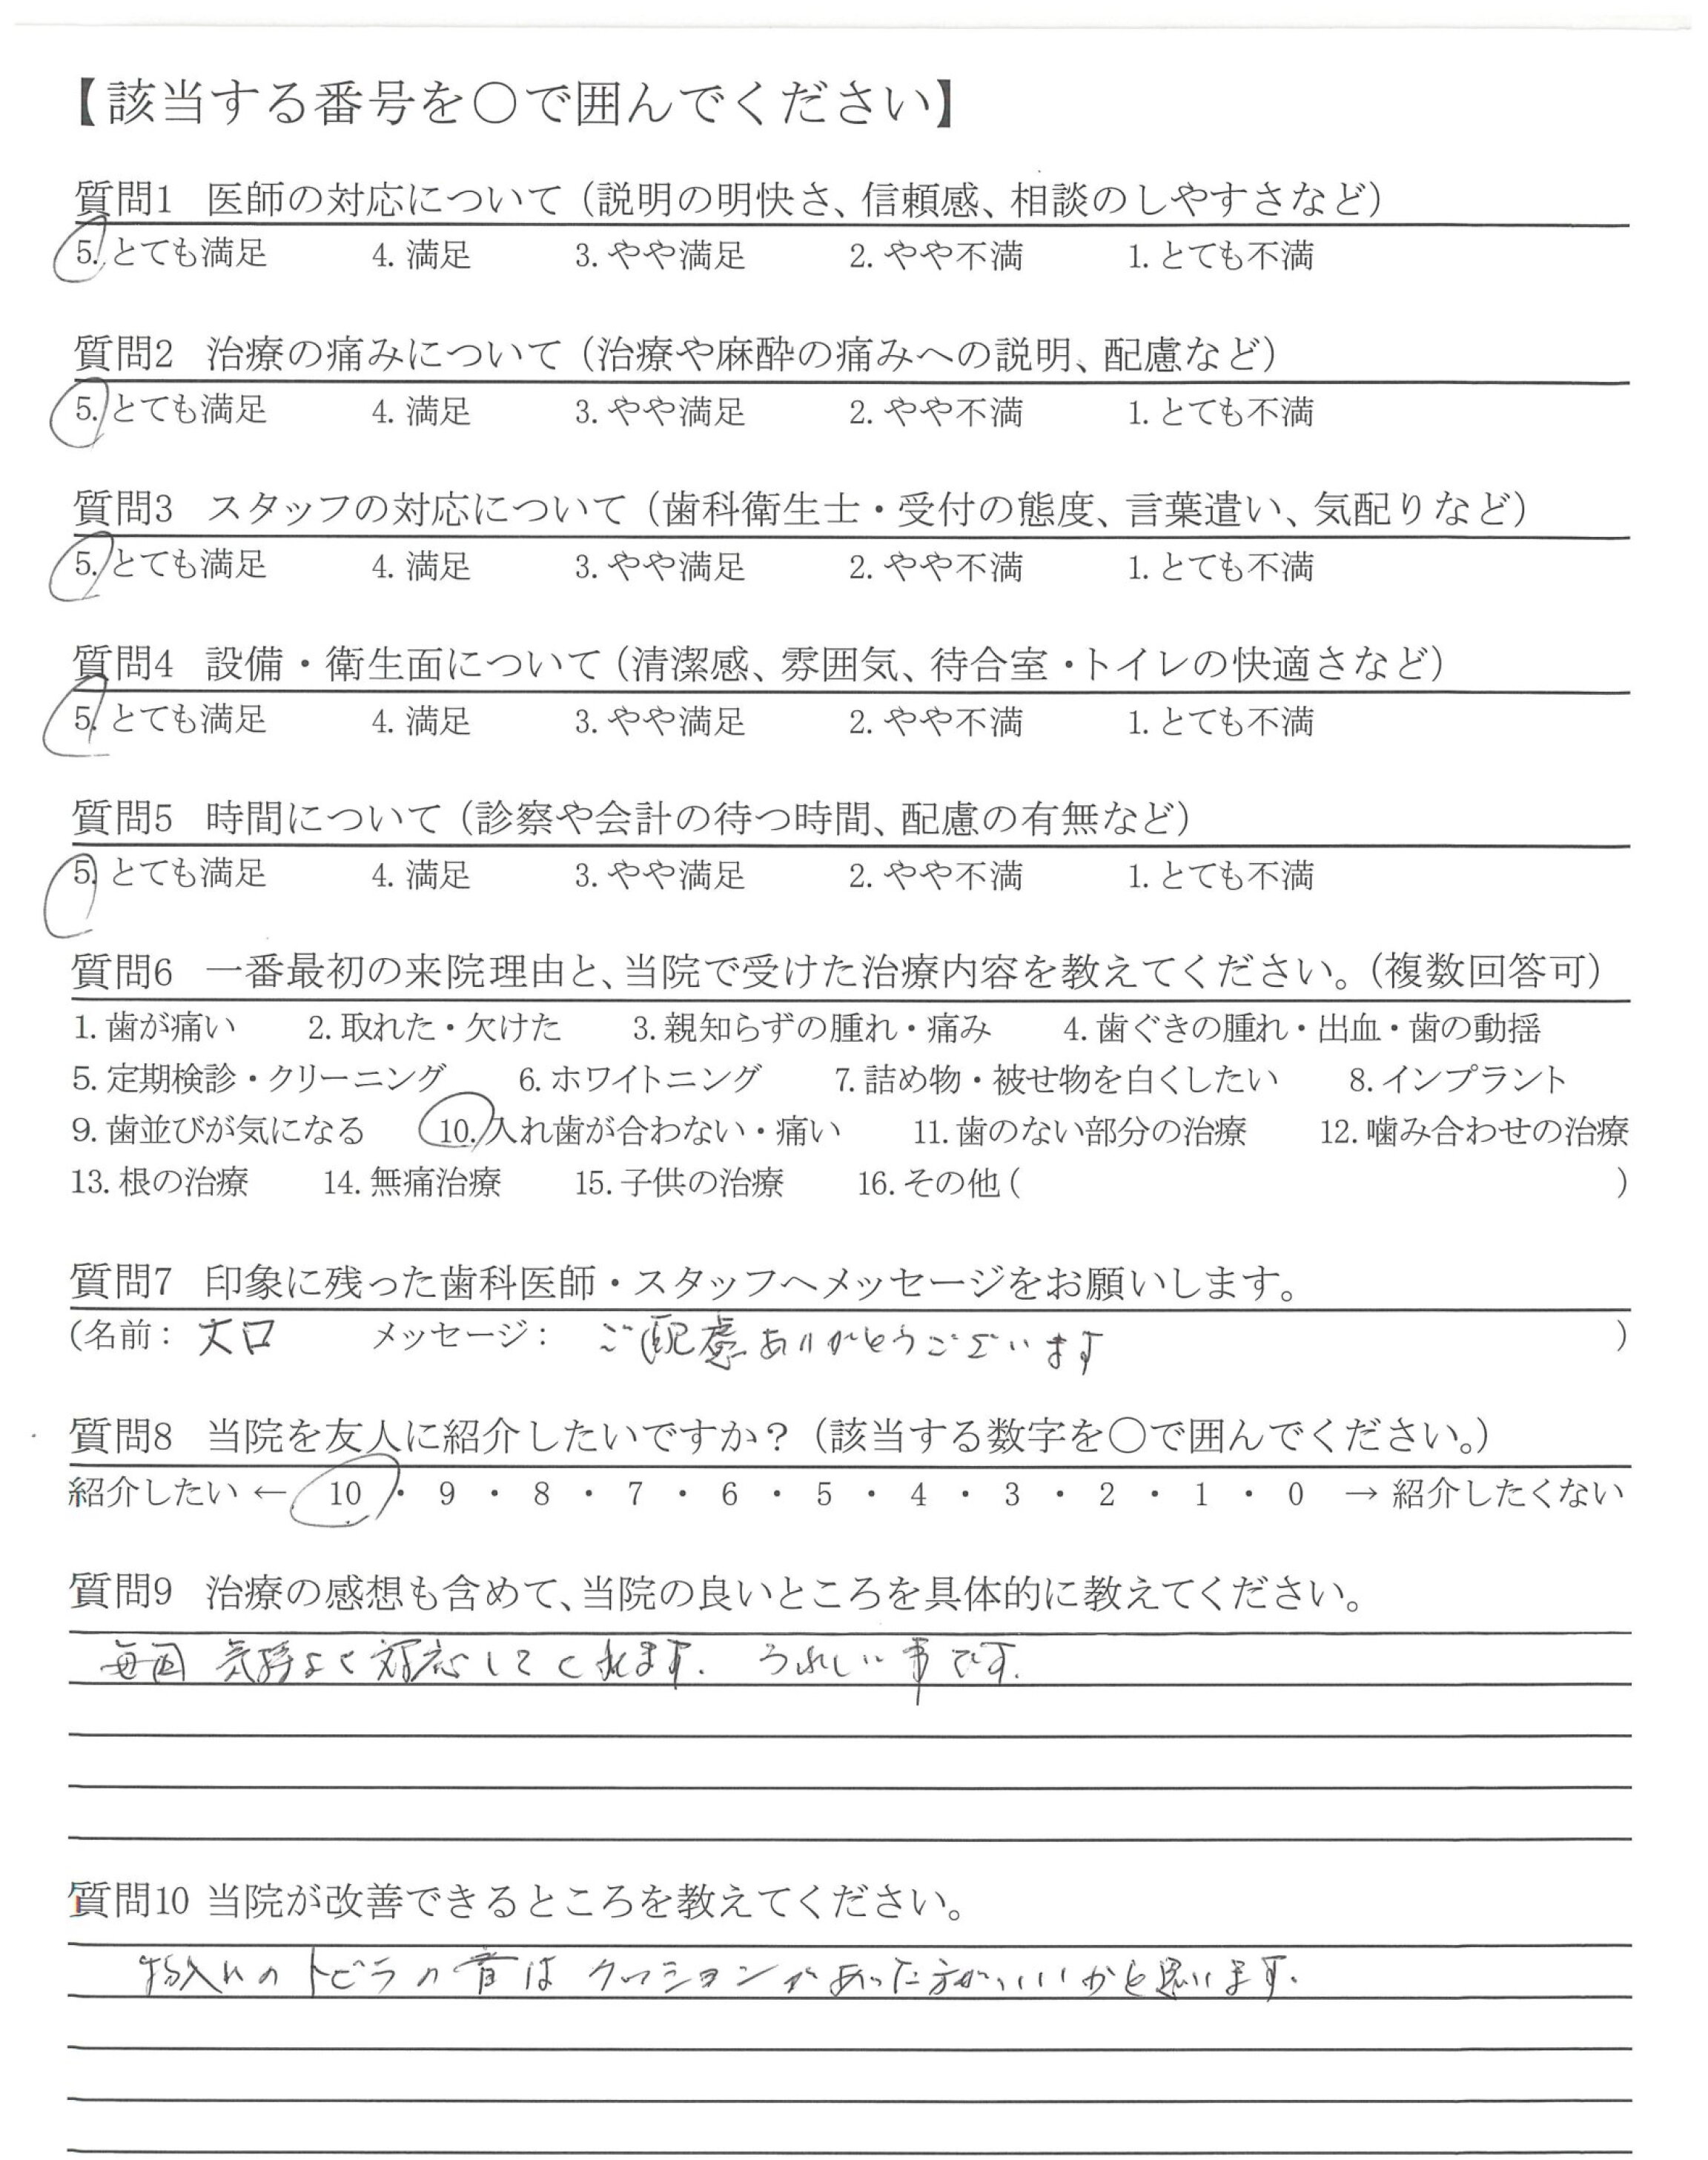 【該当する番号を○で囲んでください】
質問1 医師の対応について（説明の明快さ、信頼感、相談のしやすさなど）
5. とても満足 4. 満足 3. やや満足 2. やや不満 1. とても不満
質問2 治療の痛みについて（治療や麻酔の痛みへの説明、配慮など）
5. とても満足 4. 満足 3. やや満足 2. やや不満 1. とても不満
質問3 スタッフの対応について（歯科衛生士・受付の態度、言葉遣い、気配りなど）
5. とても満足 4. 満足 3. やや満足 2. やや不満 1. とても不満
質問4 設備・衛生面について（清潔感、雰囲気、待合室・トイレの快適さなど）
5. とても満足 4. 満足 3. やや満足 2. やや不満 1. とても不満
質問5 時間について（診察や会計の待つ時間、配慮の有無など）
5. とても満足 4. 満足 3. やや満足 2. やや不満 1. とても不満
質問6 一番最初の来院理由と、当院で受けた治療内容を教えてください。（複数回答可）
1. 歯が痛い 2. 取れた・欠けた 3. 親知らずの腫れ・痛み 4. 歯ぐきの腫れ・出血・歯の動揺
5. 定期検診・クリーニング 6. ホワイトニング 7. 詰め物・被せ物を白くしたい 8. インプラント
9. 歯並びが気になる 10. 入れ歯が合わない・痛い 11. 歯のない部分の治療 12. 噛み合わせの治療
13. 根の治療 14. 無痛治療 15. 子供の治療 16. その他（ ）
質問7 印象に残った歯科医師・スタッフへメッセージをお願いします。
（名前： 大口 メッセージ： ご配慮ありがとうございます ）
質問8 当院を友人に紹介したいですか？（該当する数字を○で囲んでください。）
紹介したい ← 10 ・ 9 ・ 8 ・ 7 ・ 6 ・ 5 ・ 4 ・ 3 ・ 2 ・ 1 ・ 0 → 紹介したくない
質問9 治療の感想も含めて、当院の良いところを具体的に教えてください。
毎回 気持よく対応してくれます. うれしい事です.
質問10 当院が改善できるところを教えてください。
物入れのトビラの音はクッションがあった方がいいかと思います.